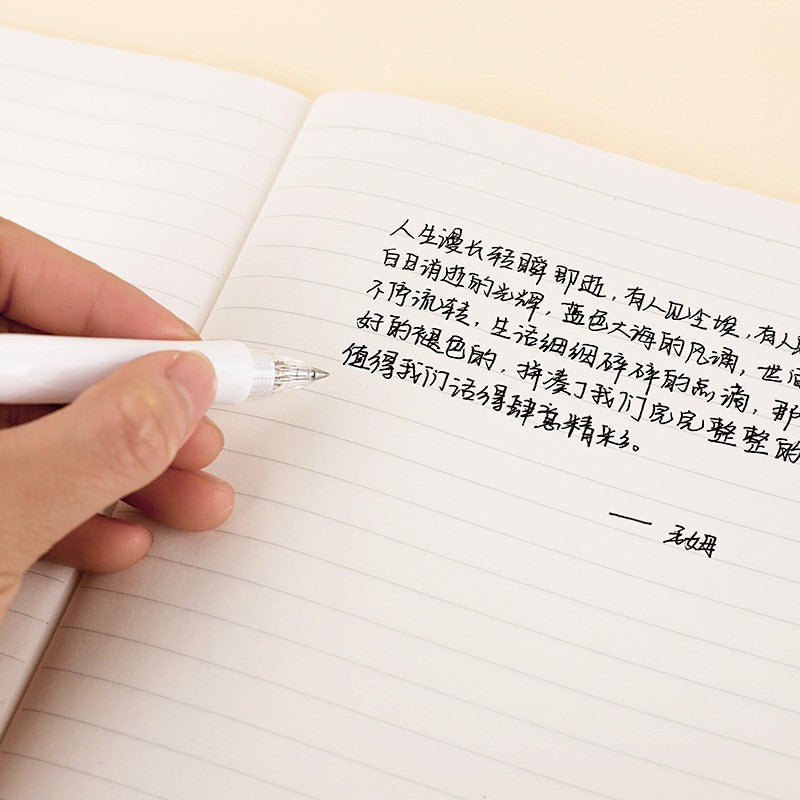 人生漫长轻瞬即逝，有人见尘埃，有人
白日消逝的光辉，蓝色大海的风涌，世
不停流转，生活细细碎碎的点滴，那
好的褪色的，拼凑了我们完完整整的
值得我们活得肆意精彩。
—— 毛姆